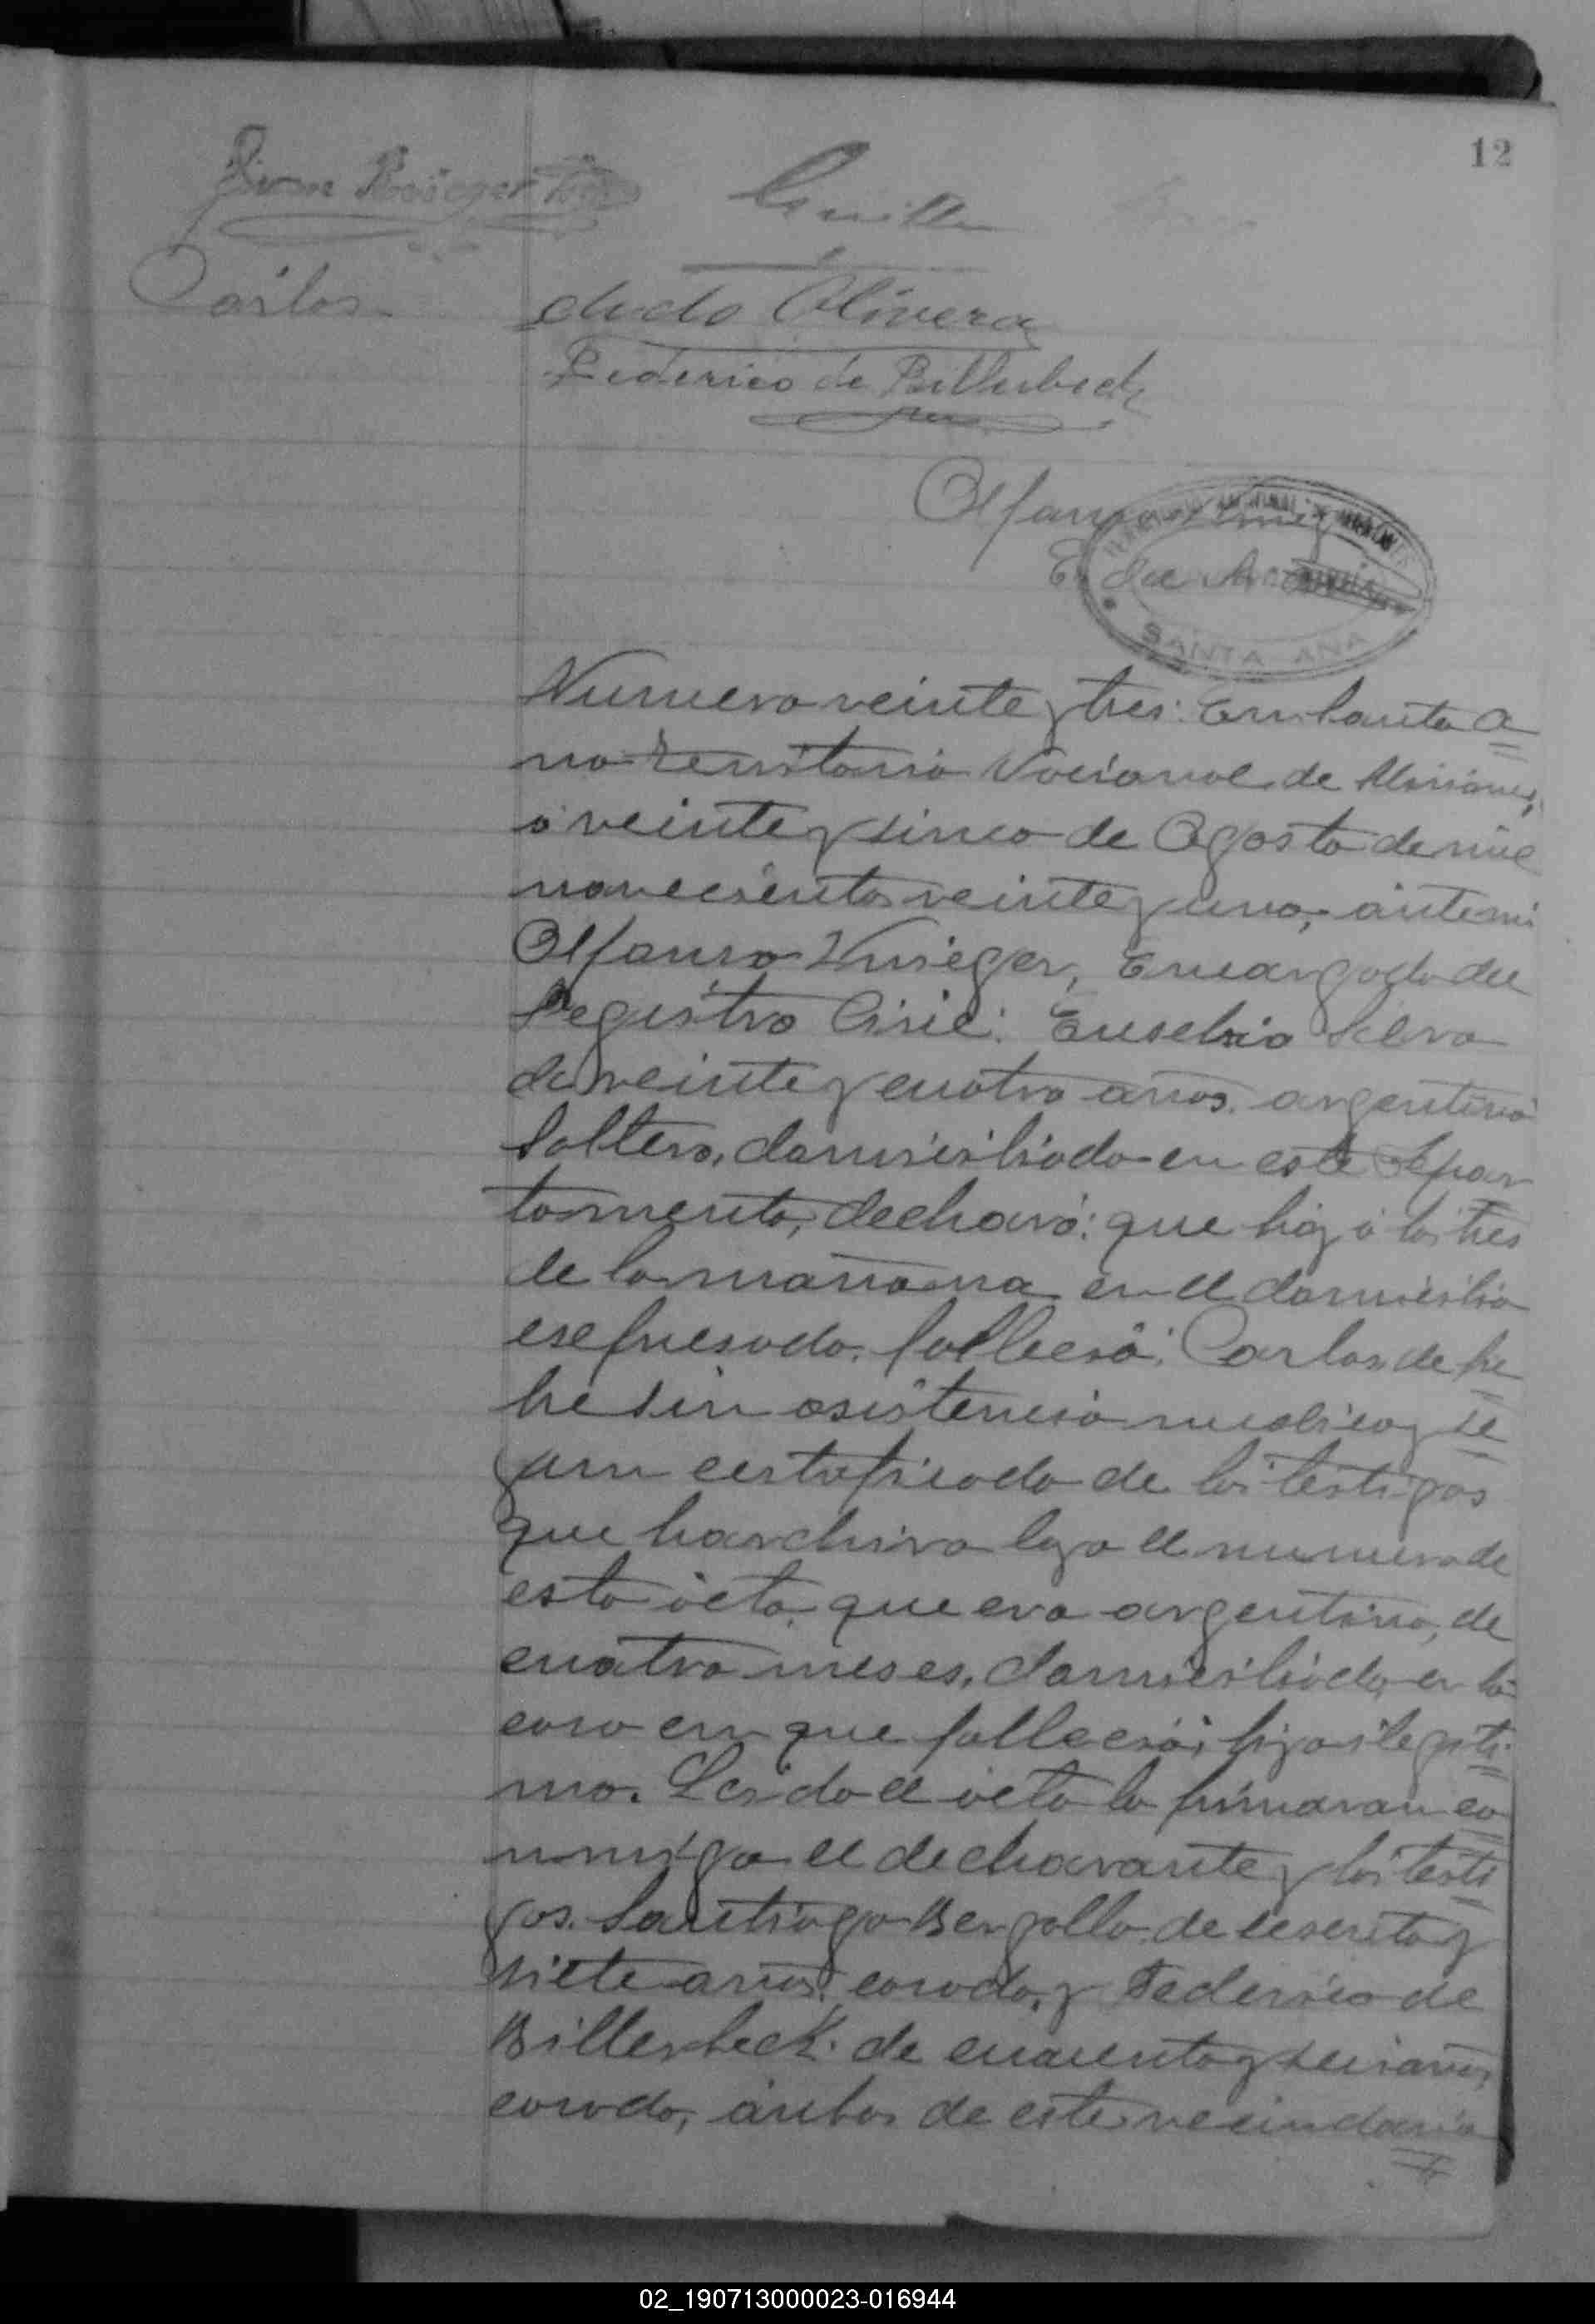 12
Carlos
Olivera
Federico de Billerbeck
SANTA ANA
Numero veinte y tres: En Santa A
na Territorio Nacional de Misiones,
á veinte y sinco de Agosto de mil
novecientos veinte y uno, ánte mi
Alfonso Krieger, Encargado del
Registro Civil: Eusebio Silva
de veinte y cuatro años, argentino
soltero, domisiliado en este depar
tamento, declaró: que hoy á las tres
de la mañana en el domisilio
esefresado, fallesió: Carlos, de fie
bre sin asistencia medica, se
gun certificado de los testigos
que harchivo bajo el numero de
esta ácta, que era argentino, de
cuatro meses, domisiliado en la
casa en que fallesió, hijo ilegiti
mo. Leida el ácta la firmaron co
nmigo el declarante y los testi
gos. Santiago Bergallo, de sesenta y
siete años, casado, y Federico de
Billerbeck: de cuarenta y seis años,
casado, ámbos de este vecindario
02_190713000023-016944